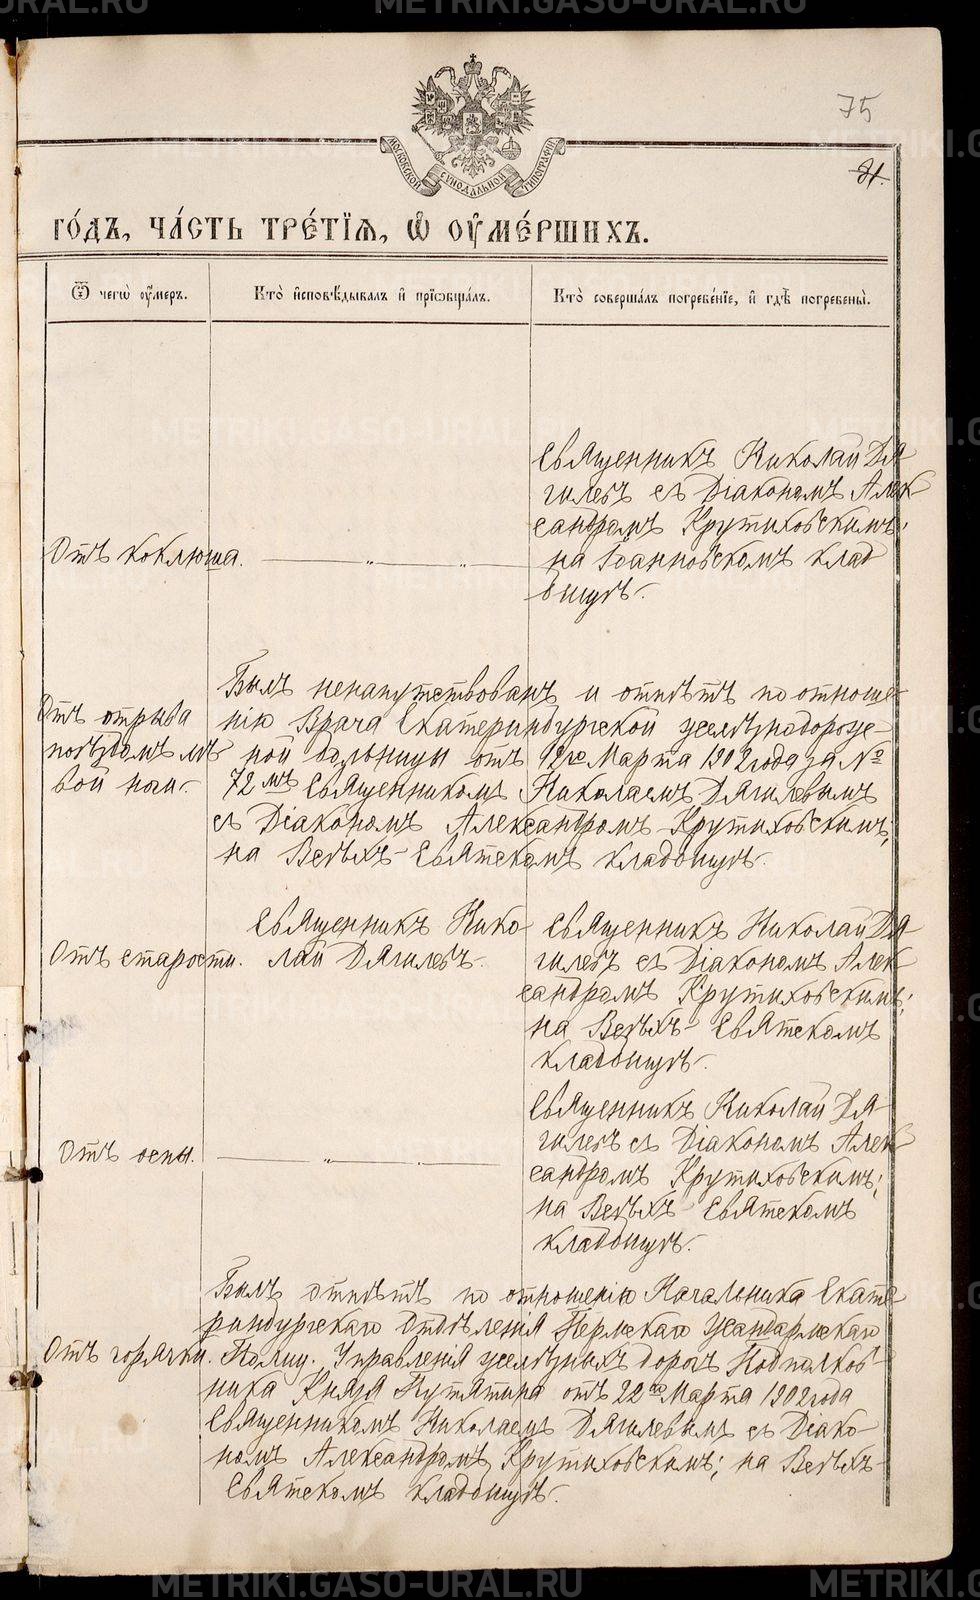 METRIKI.GASO-URAL.RU
75
81.
МОСКОВСКОЙ СѴНОДАЛЬНОЙ ТИПОГРАФІИ
ГО́ДЪ, ЧА́СТЬ ТРЕ́ТІѦ, Ѡ҆ ОУ҆МЕ́РШИХЪ.
Ѿ чегѡ̀ оу҆́меръ.
Кто̀ и҆сповѣ́дывалъ и҆ прїѡбща́лъ.
Кто̀ соверша́лъ погребе́нїе, и҆ гдѣ̀ погребены̀.
Отъ коклюша.
Священникъ Николай Дя
гилевъ съ Діакономъ Алек
сандромъ Крутиховскимъ;
на Іоанновскомъ клад
бищѣ.
Отъ отрыва
поѣздомъ лѣ
вой ноги.
Былъ ненапутствованъ и отпѣтъ по отноше-
нію Врача Екатеринбургской желѣзнодорож-
ной больницы отъ 12го Марта 1902 года за №
72мъ Священникомъ Николаемъ Дягилевымъ
съ Діакономъ Александромъ Крутиховскимъ;
на Всѣхъ-Святскомъ кладбищѣ.
Отъ старости.
Священникъ Нико
лай Дягилевъ.
Священникъ Николай Дя
гилевъ съ Діакономъ Алек
сандромъ Крутиховскимъ;
на Всѣхъ-Святскомъ
кладбищѣ.
Отъ оспы.
Священникъ Николай Дя
гилевъ съ Діакономъ Алек
сандромъ Крутиховскимъ;
на Всѣхъ-Святскомъ
кладбищѣ.
Отъ горячки.
Былъ отпѣтъ по отношенію Начальника Екате
ринбургскаго Отдѣленія Пермскаго Жандармскаго
Полиц. Управленія желѣзныхъ дорогъ Подполков
ника Князя Путятина отъ 22го Марта 1902 года
Священникомъ Николаемъ Дягилевымъ съ Діако-
номъ Александромъ Крутиховскимъ; на Всѣхъ-
Святскомъ кладбищѣ.